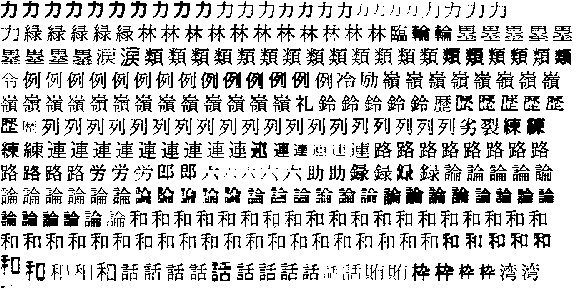 力力力力力力力力力力力力力力力力力力力力力力力力
力緑緑緑緑緑林林林林林林林林林林林臨輪輪塁塁塁塁塁
塁塁塁塁涙涙類類類類類類類類類類類類類類類類類類類
令例例例例例例例例例例例例例例冷励嶺嶺嶺嶺嶺嶺嶺嶺
嶺嶺嶺嶺嶺嶺嶺嶺嶺嶺嶺嶺嶺礼鈴鈴鈴鈴鈴暦歴歴歴歴歴
歴歴列列列列列列列列列列列列列列列列列列劣裂練練
練練連連連連連連連連連連連連連連路路路路路路路路
路路路路労労労郎郎六六六六六助助録録録録論論論論論
論論論論論論論論論論論論論論論論論論論論論論論論
論論論論論論和和和和和和和和和和和和和和和和和和
和和和和和和和和和和和和和和和和和和和和和和和和
和和和和和話話話話話話話話話話話賄賄枠枠枠枠湾湾